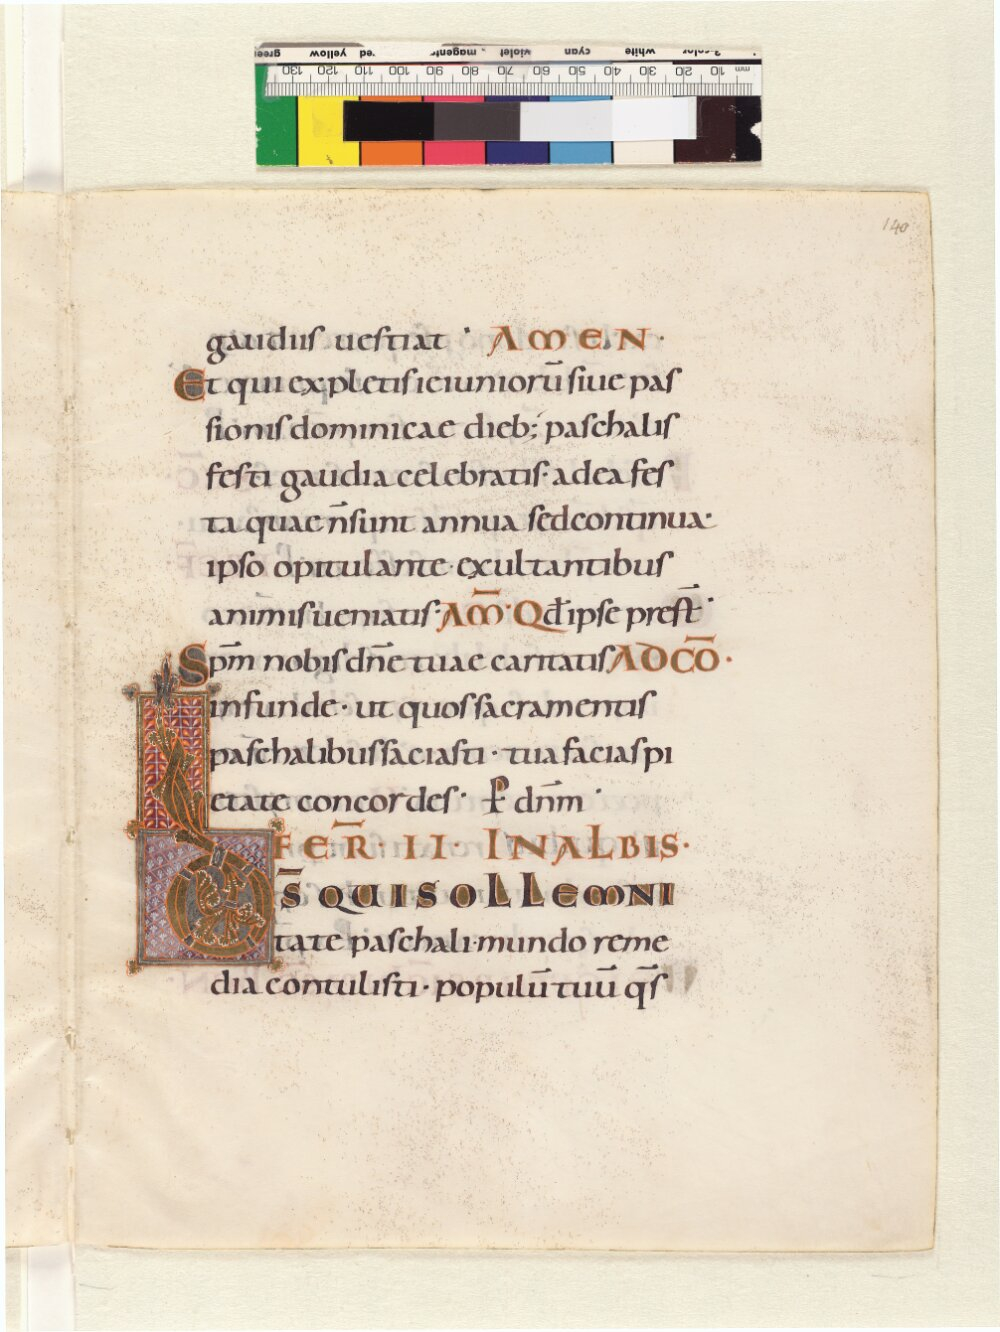 140
gaudiis uestiat · AMEN ·
Et qui expletis ieiuniorū siue pas
sionis dominicae dieb; paschalis
festi gaudia celebratis· adea fes
ta quae n̄ sunt annua sed continua·
ipso opitulante· exultantibus
animis ueniatis· AM̄· Qđ ipse prest̄·
Sp̄m nobis dn̄e tuae caritatis AD CŌ·
infunde· ut quos sacramentis
paschalibus saciasti· tua facias pi
etate concordes· P̲ dn̄m·
FER̄· II· IN ALBIS·
D S̄ QUI SOLLEMNI
tate paschali· mundo reme
dia contulisti· populū tuū q̄s